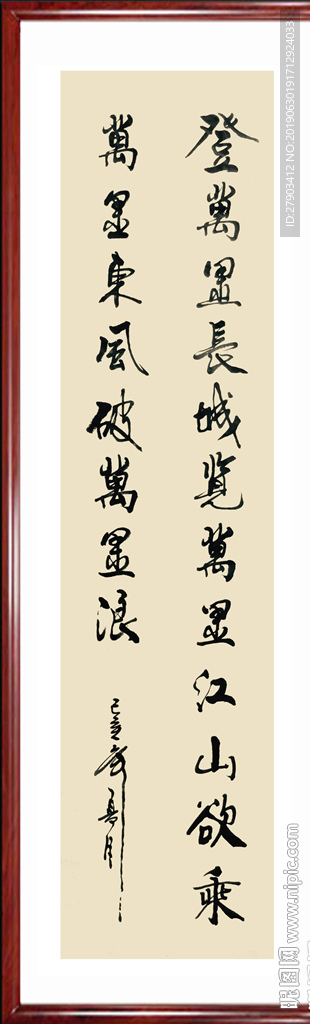 登萬里長城覽萬里江山欲乘
萬里東風破萬里浪
己亥年夏月
ID:27903412 NO:20190630191712924033
昵图网 www.nipic.com